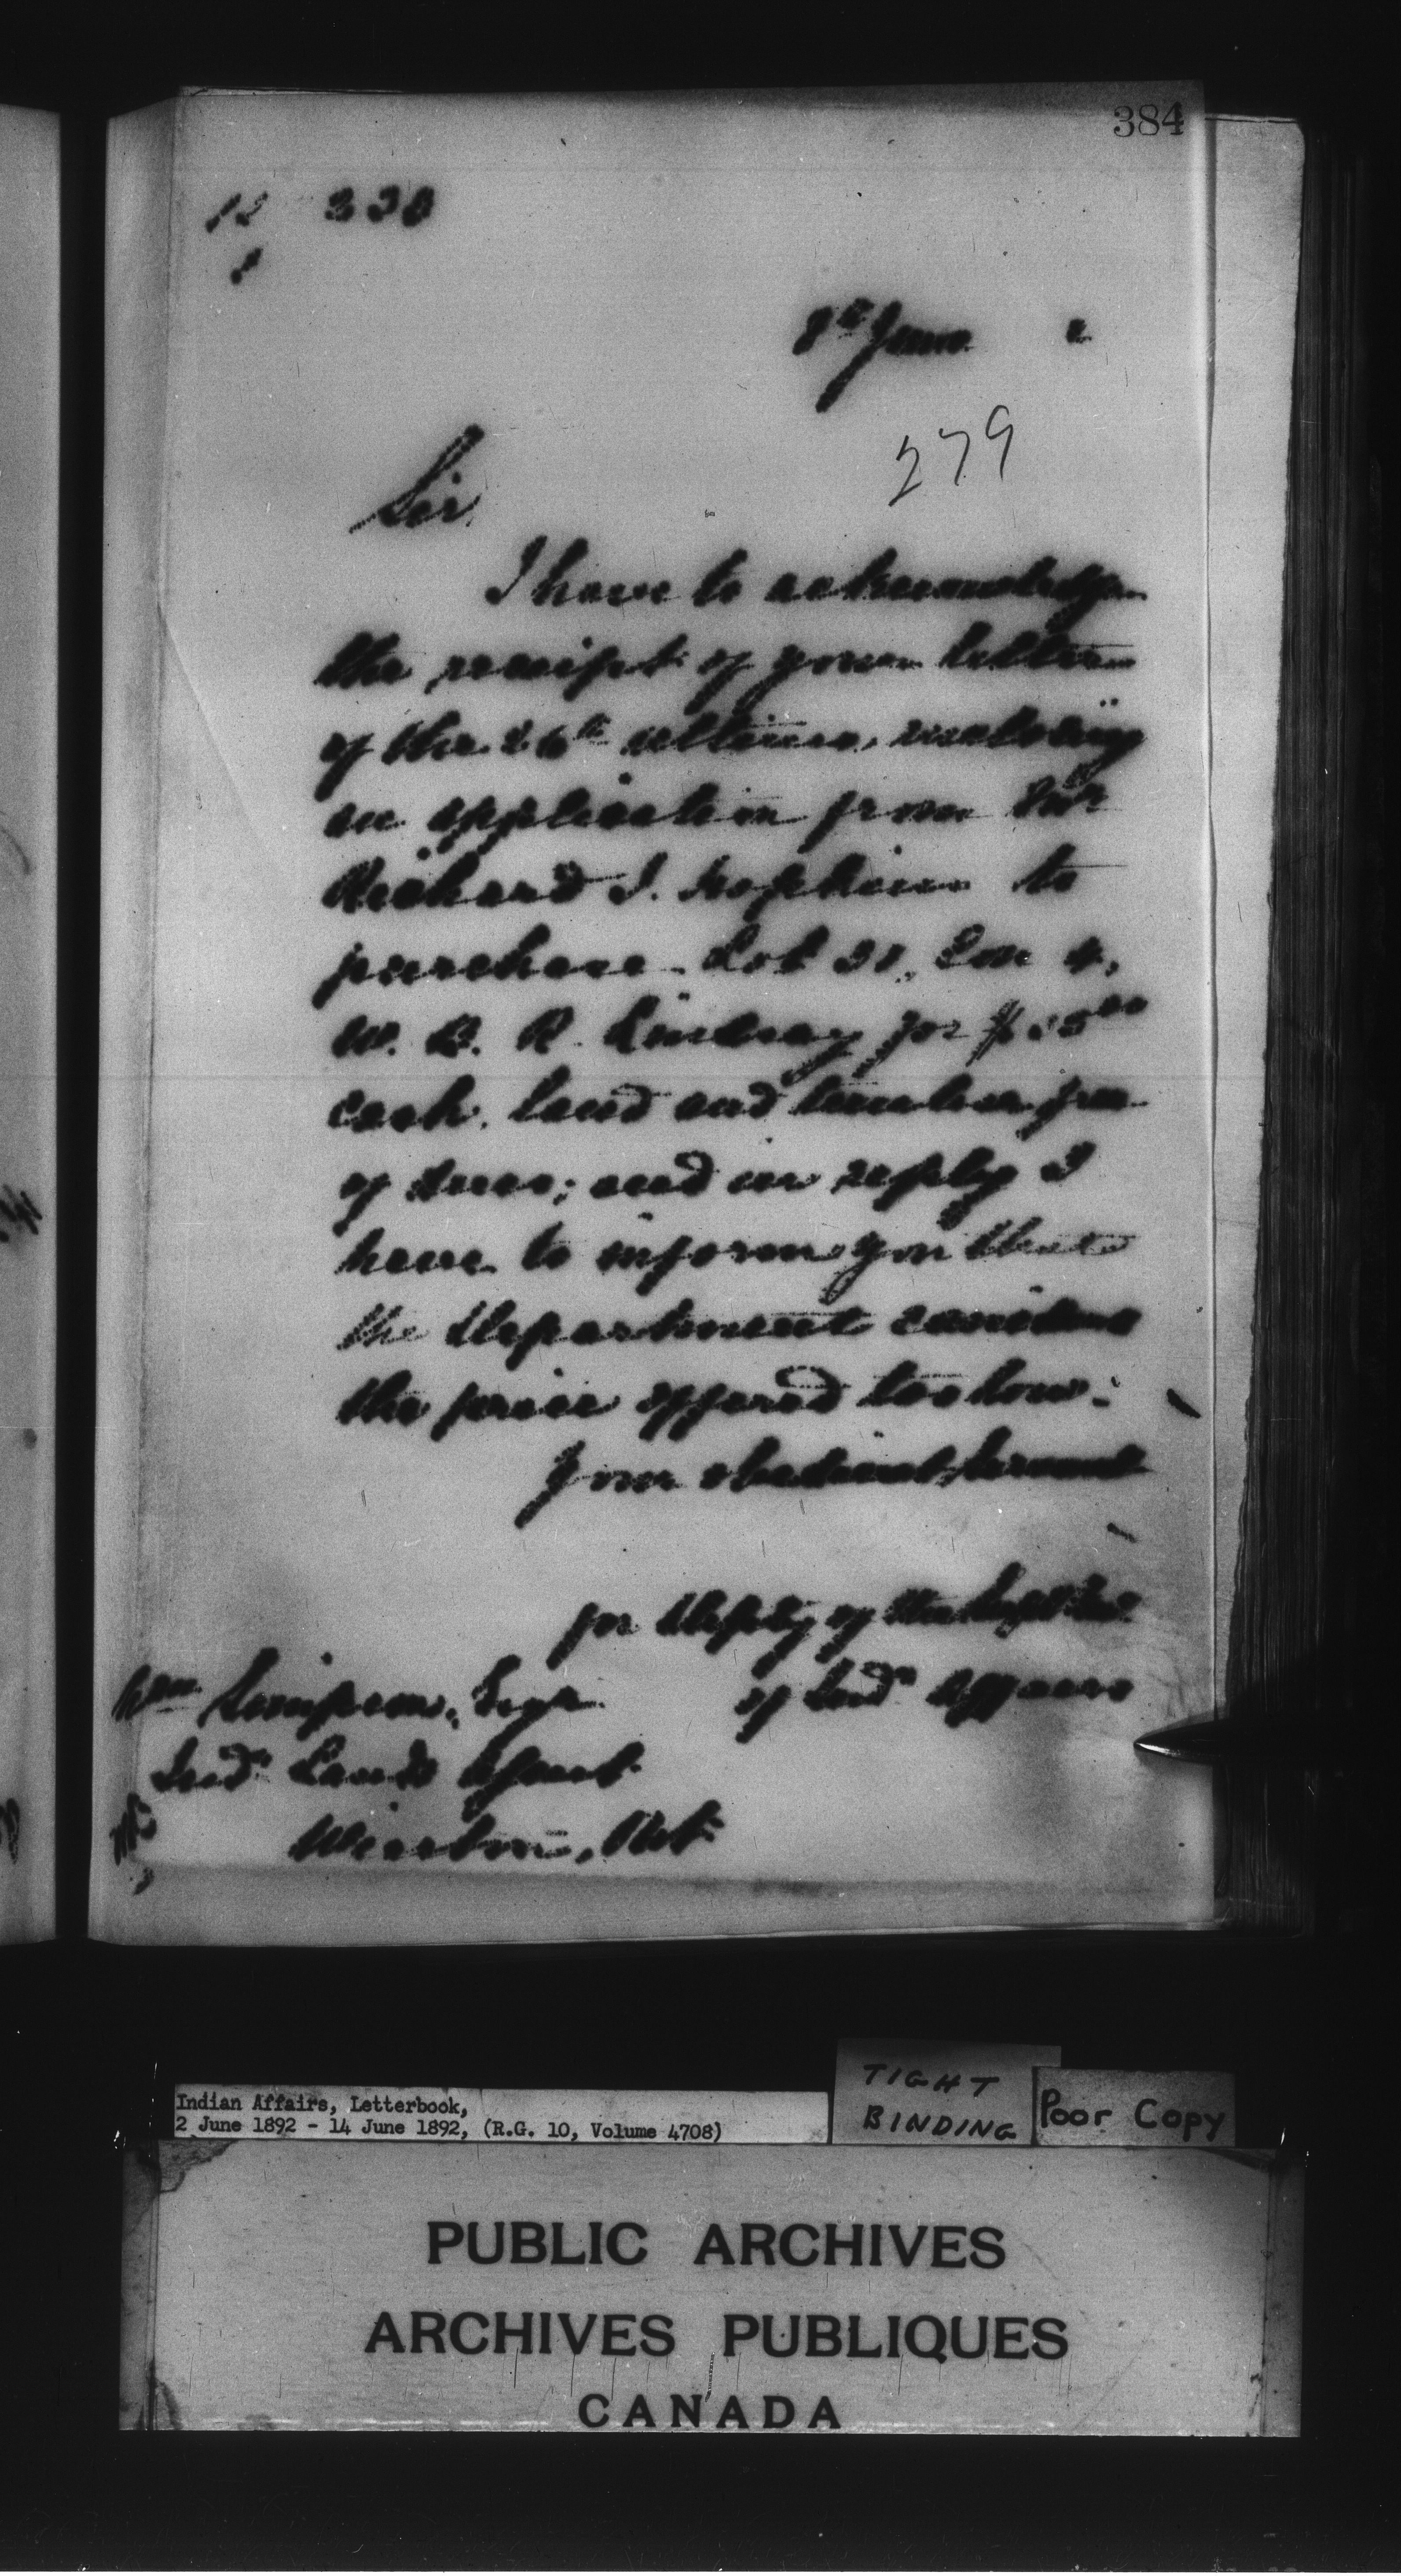 384
12 338
8th June 2
279
Sir,
I have to acknowledge
the receipt of your letter
of the 26th ultimo, enclosing
an application from Mr
Richard J. Hopkins to
purchase Lot 31, Con 4,
W. B. R. Lindsay for $25 00
cash, land and timber free
of dues; and in reply I
have to inform you that
the Department considers
the price offered too low.
Your obedient Servant
for Deputy of the Supt Genl
of Indn Affairs
Wm Simpson, Esqr
Indn Lands Agent
Wiarton, Ont
Indian Affairs, Letterbook,
2 June 1892 - 14 June 1892, (R.G. 10, Volume 4708)
TIGHT
BINDING
Poor Copy
PUBLIC ARCHIVES
ARCHIVES PUBLIQUES
CANADA